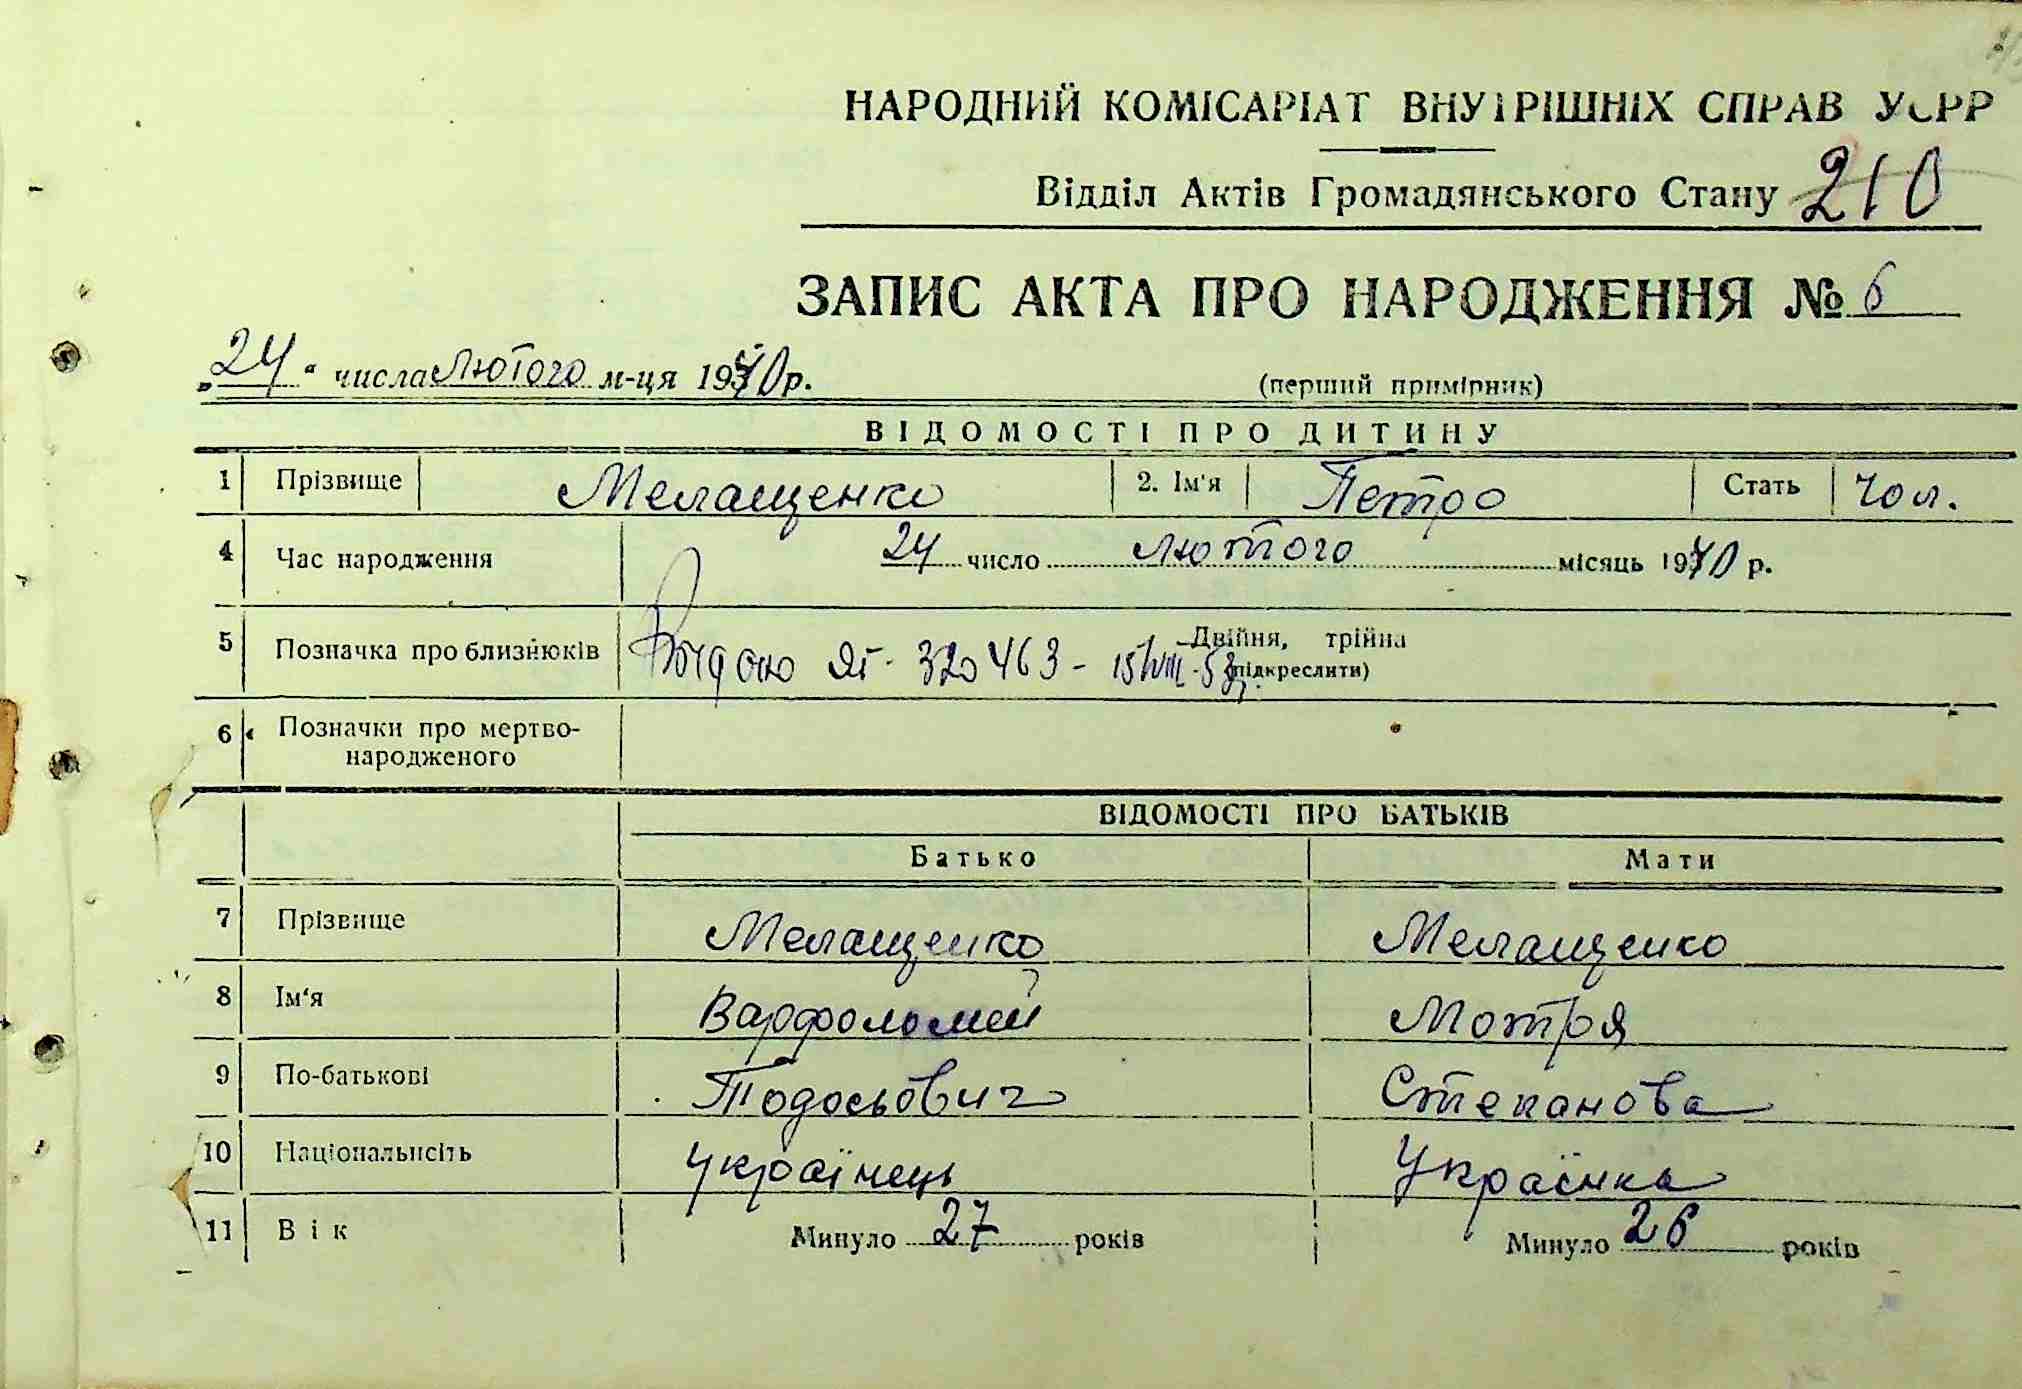 НАРОДНИЙ КОМІСАРІАТ ВНУТРІШНІХ СПРАВ УСРР
Відділ Актів Громадянського Стану 210
ЗАПИС АКТА ПРО НАРОДЖЕННЯ № 6
„24“ числа лютого м-ця 1940 р.
(перший примірник)
ВІДОМОСТІ ПРО ДИТИНУ
1 Прізвище Мелащенко 2. Ім'я Петро Стать Чол.
4 Час народження 24 число лютого місяць 1940 р.
5 Позначка про близнюків Двійня, трійня
Видано ЯГ- 320463 - 15/VIII-53р. (підкреслити)
6 Позначки про мертво-
народженого
ВІДОМОСТІ ПРО БАТЬКІВ
Батько Мати
7 Прізвище Мелащенко Мелащенко
8 Ім'я Варфоломей Мотря
9 По-батькові Тодосьович Степанова
10 Національність Українець Українка
11 Вік Минуло 27 років Минуло 26 років